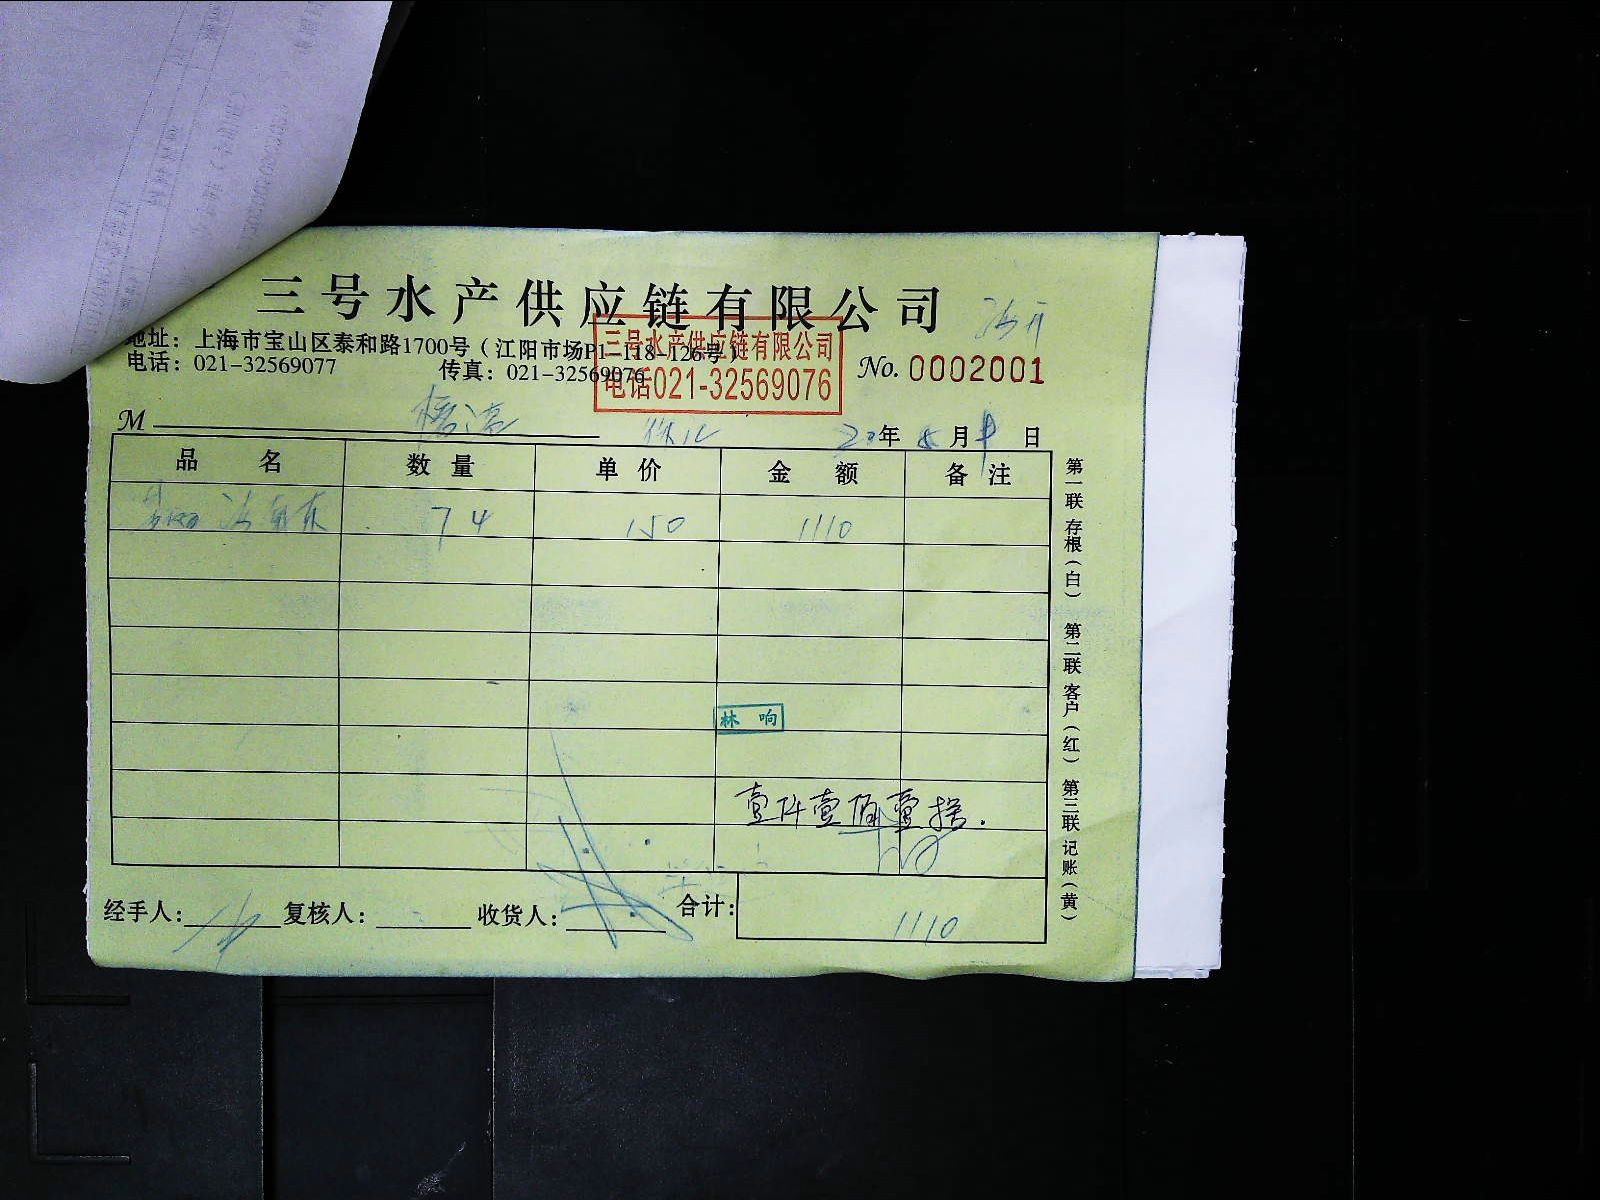 三号水产供应链有限公司
地址：上海市宝山区泰和路1700号（江阳市场P1-118-126号）
电话：021-32569077 传真：021-32569076
三号水产供应链有限公司
电话021-32569076
No. 0002001
M
20年 月 日
品名 数量 单价 金额 备注
74 150 1110
林响
壹仟壹佰壹拾.
经手人： 复核人： 收货人： 合计： 1110
第一联 存根（白） 第二联 客户（红） 第三联 记账（黄）